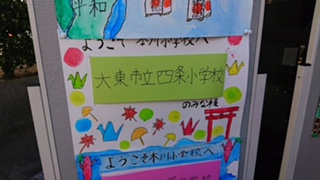 平和
ようこそ本川小学校へ
大東市立四条小学校
のみな様
ようこそ本川小学校へ